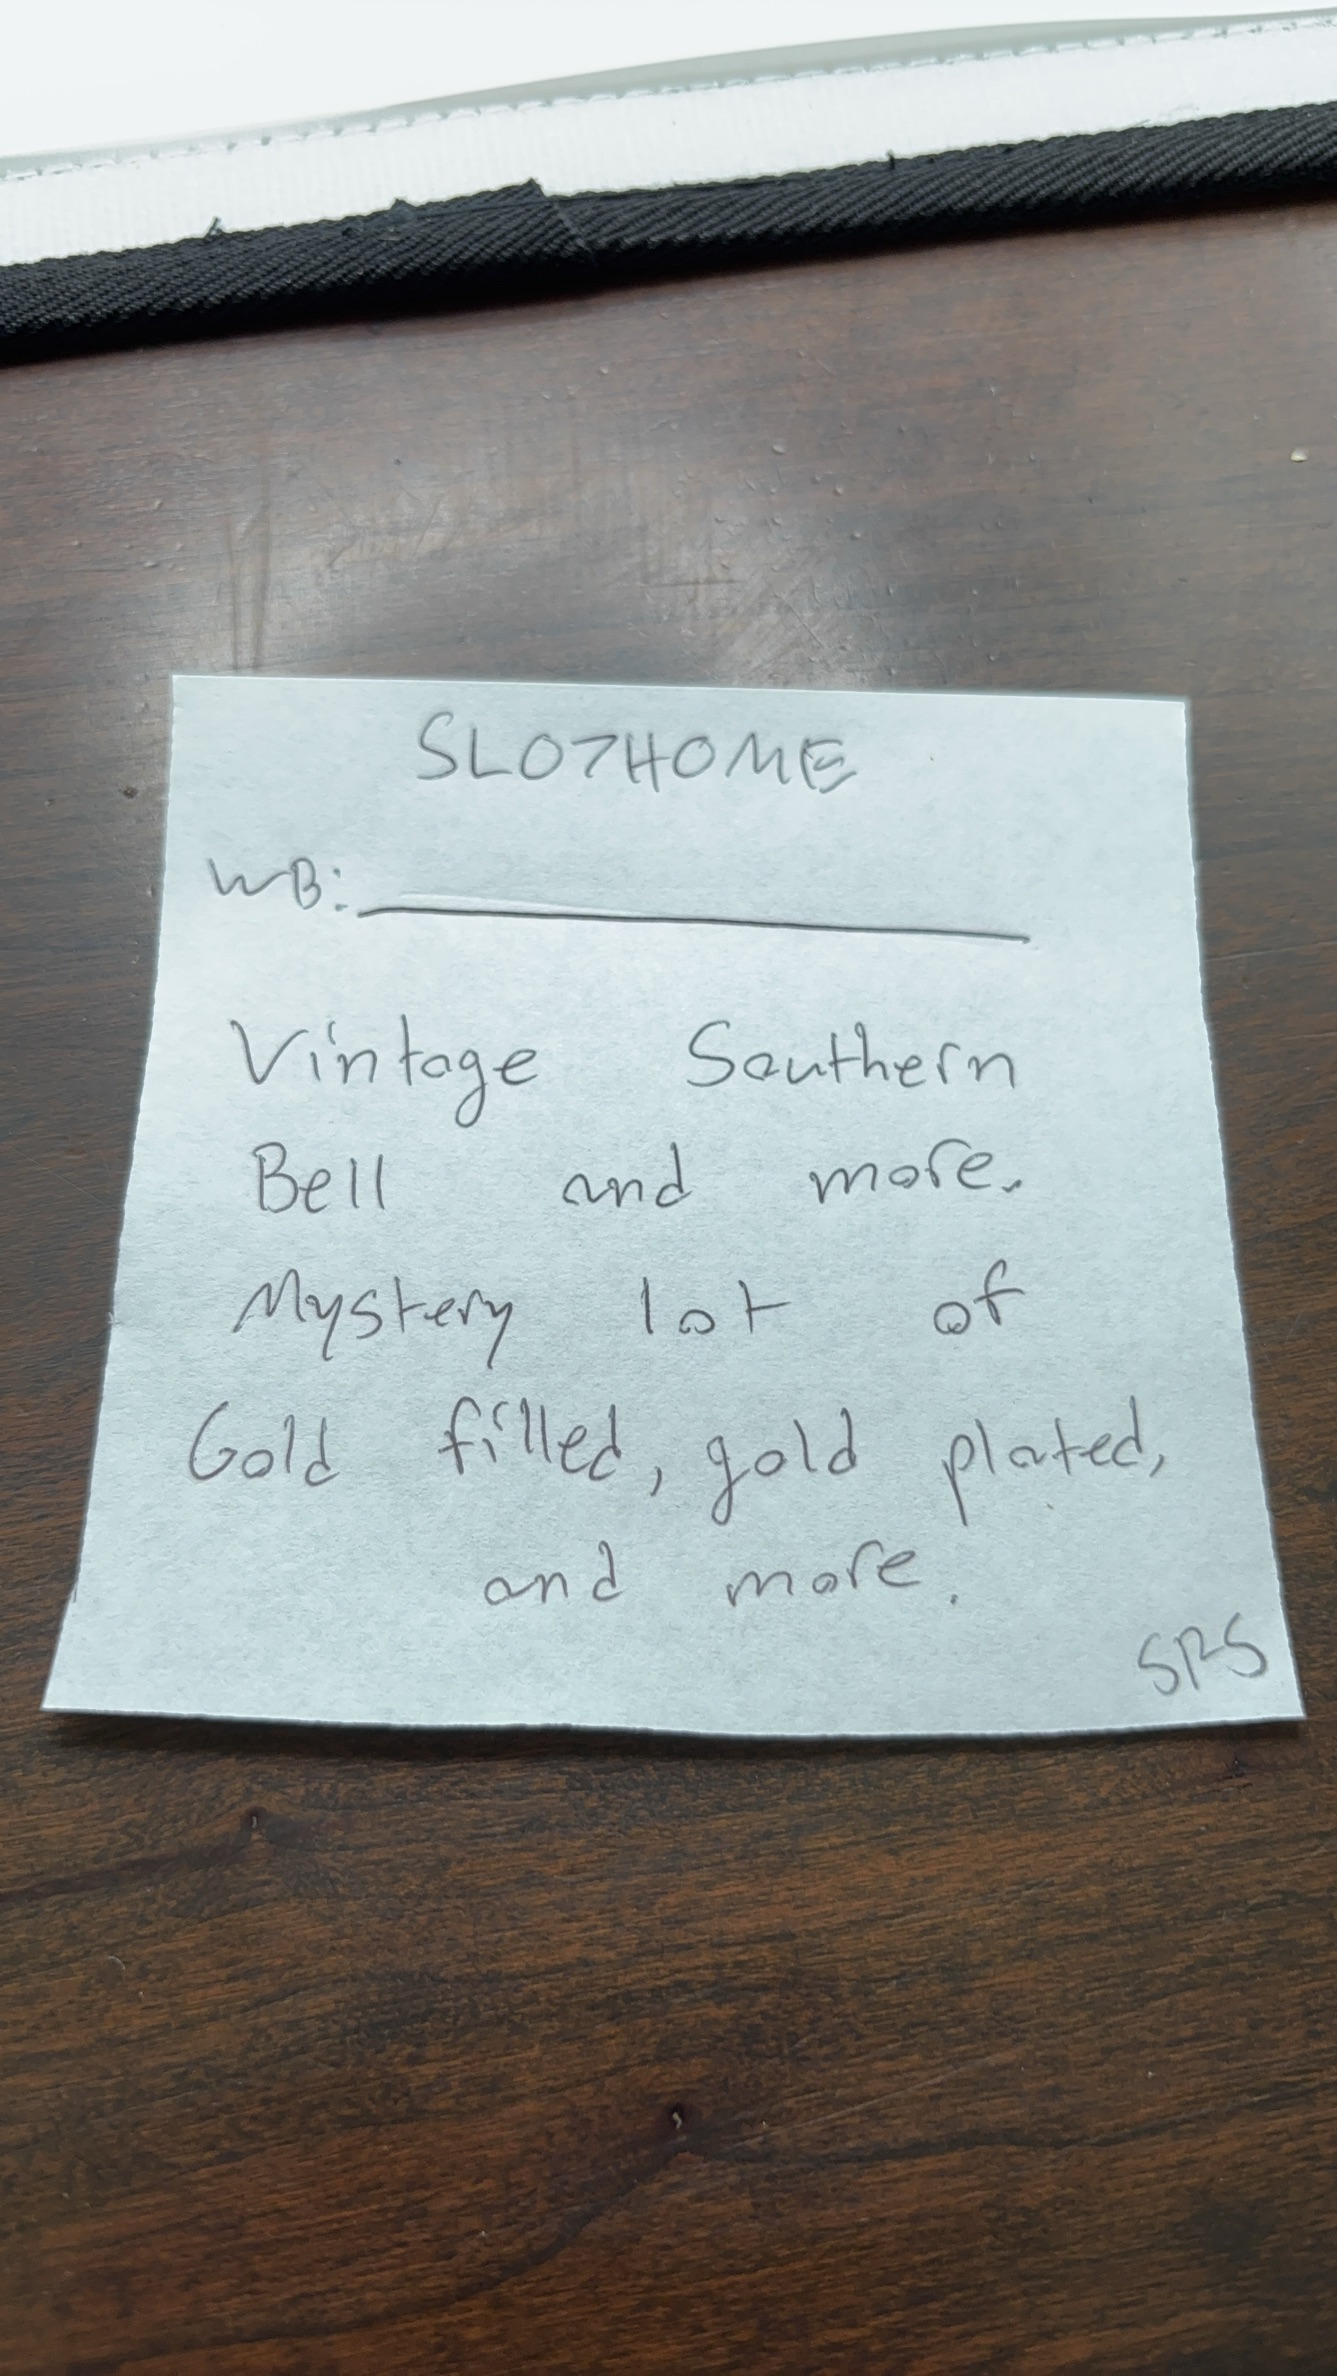 SLO7HOME
WB:
Vintage Southern
Bell and more.
Mystery lot of
Gold filled, gold plated,
and more.
SRS